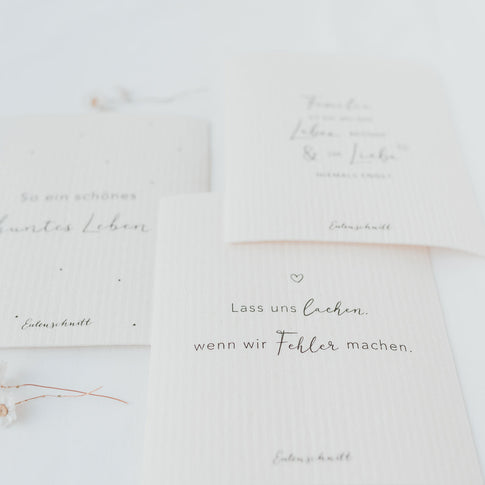 Familie
Leben
& die Liebe
NIEMALS ENDET
Eulenschnitt
So ein schönes
buntes Leben
Eulenschnitt
Lass uns lachen,
wenn wir Fehler machen.
Eulenschnitt